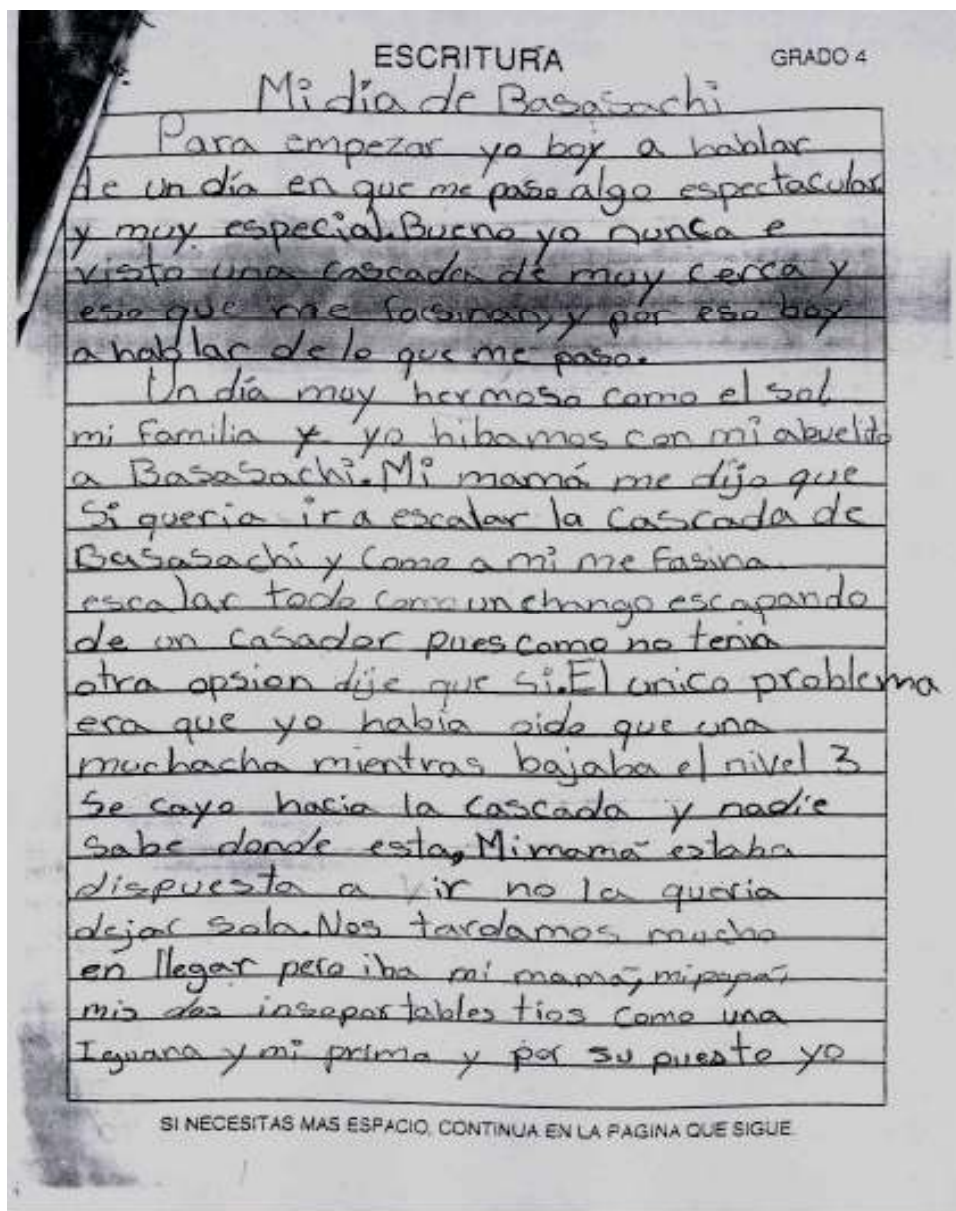 ESCRITURA GRADO 4
Mi día de Basasachi
Para empezar yo boy a hablar
de un día en que me paso algo espectacular
y muy especial. Bueno yo nunca e
visto una cascada de muy cerca y
eso que me facsinan, y por eso boy
a hablar de lo que me paso.
Un día muy hermoso como el sol
mi familia y yo hibamos con mi abuelito
a Basasachi. Mi mamá me dijo que
si queria ir a escalar la cascada de
Basasachi y como a mi me fasina
escalar todo como un chango escapando
de un casador pues como no tenia
otra opsion dije que si. El unico problema
era que yo había oido que una
muchacha mientras bajaba el nivel 3
se cayo hacia la cascada y nadie
sabe donde esta, Mi mamá estaba
dispuesta a ir no la queria
dejar sola. Nos tardamos mucho
en llegar pero iba mi mamá, mi papá,
mis dos insoportables tios como una
Iguana y mi prima y por su puesto yo
SI NECESITAS MAS ESPACIO, CONTINUA EN LA PAGINA QUE SIGUE.